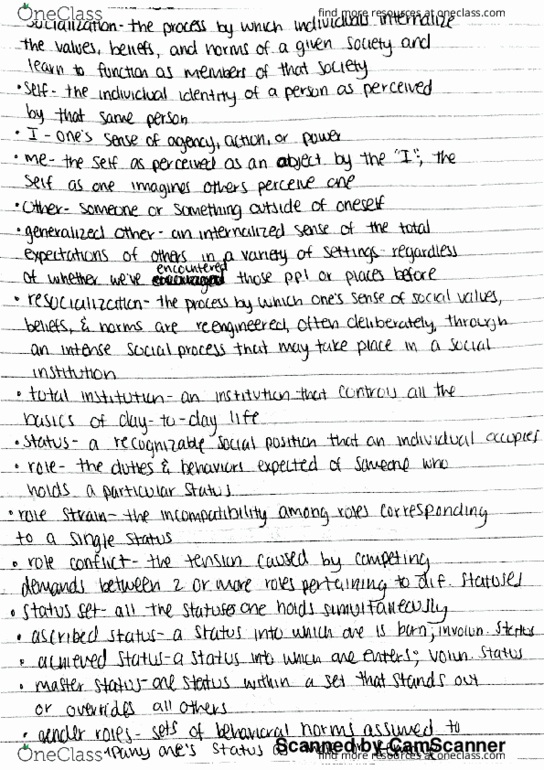 OneClass
find more resources at oneclass.com
find more resources at oneclass.com
Socialization - the process by which individuals internalize
the values, beliefs, and norms of a given society and
learn to function as members of that society
• Self - the individual identity of a person as perceived
by that same person
• I - one's sense of agency, action, or power
• me - the self as perceived as an object by the "I"; the
self as one imagines others perceive one
• Other - someone or something outside of oneself
• generalized other - an internalized sense of the total
expectations of others in a variety of settings - regardless
of whether we've encountered those ppl or places before
• resocialization - the process by which one's sense of social values,
beliefs, & norms are reengineered, often deliberately, through
an intense social process that may take place in a social
institution
• total institution - an institution that controls all the
basics of day-to-day life
• Status - a recognizable social position that an individual occupies
• role - the duties & behaviors expected of someone who
holds a particular status
• role strain - the incompatibility among roles corresponding
to a single status
• role conflict - the tension caused by competing
demands between 2 or more roles pertaining to dif. statuses
• Status set - all the statuses one holds simultaneously
• ascribed status - a status into which one is born; involun. status
• achieved status - a status into which one enters; volun. status
• master status - one status within a set that stands out
or overrides all others
• gender roles - sets of behavioral norms assumed to
accompany one's status as
Scanned by CamScanner
OneClass
find more resources at oneclass.com